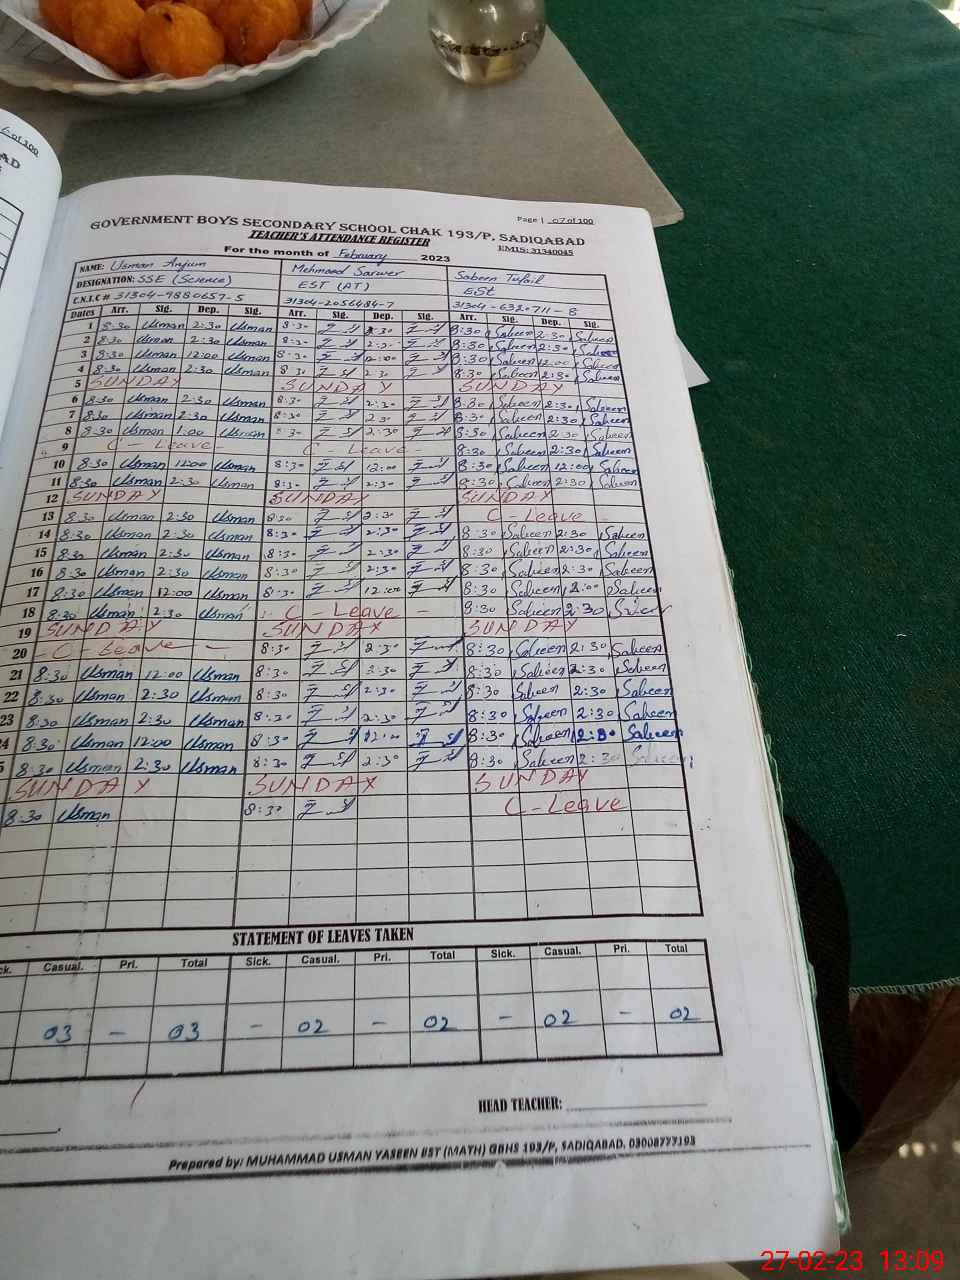 6 of 100
AD
Page | 07 of 100
GOVERNMENT BOYS SECONDARY SCHOOL CHAK 193/P, SADIQABAD
TEACHER'S ATTENDANCE REGISTER
EMIS: 31340045
For the month of February 2023
NAME: Usman Anjum Mehmood Sarwer Sabeen Tufail
DESIGNATION: SSE (Science) EST (AT) ESt
C.N.I.C # 31304-9880657-5 31304-2056484-7 31304-6320711-8
Dates Arr. Sig. Dep. Sig. Arr. Sig. Dep. Sig. Arr. Sig. Dep. Sig.
1 8:30 Usman 2:30 Usman 8:30 2:30 8:30 Sabeen 2:30 Sabeen
2 8:30 Usman 2:30 Usman 8:30 2:30 8:30 Sabeen 2:30 Sabeen
3 8:30 Usman 12:00 Usman 8:30 12:00 8:30 Sabeen 12:00 Sabeen
4 8:30 Usman 2:30 Usman 8:30 2:30 8:30 Sabeen 2:30 Sabeen
5 SUNDAY SUNDAY SUNDAY
6 8:30 Usman 2:30 Usman 8:30 2:30 8:30 Sabeen 2:30 Sabeen
7 8:30 Usman 2:30 Usman 8:30 2:30 8:30 Sabeen 2:30 Sabeen
8 8:30 Usman 1:00 Usman 8:30 2:30 8:30 Sabeen 2:30 Sabeen
9 C - Leave - C - Leave - 8:30 Sabeen 2:30 Sabeen
10 8:30 Usman 12:00 Usman 8:30 12:00 8:30 Sabeen 12:00 Sabeen
11 8:30 Usman 2:30 Usman 8:30 2:30 8:30 Sabeen 2:30 Sabeen
12 SUNDAY SUNDAY SUNDAY
13 8:30 Usman 2:30 Usman 8:30 2:30 C - Leave
14 8:30 Usman 2:30 Usman 8:30 2:30 8:30 Sabeen 2:30 Sabeen
15 8:30 Usman 2:30 Usman 8:30 2:30 8:30 Sabeen 2:30 Sabeen
16 8:30 Usman 2:30 Usman 8:30 2:30 8:30 Sabeen 2:30 Sabeen
17 8:30 Usman 12:00 Usman 8:30 12:00 8:30 Sabeen 12:00 Sabeen
18 8:30 Usman 2:30 Usman C - Leave - 8:30 Sabeen 2:30 Sabeen
19 SUNDAY SUNDAY SUNDAY
20 - C - Leave - 8:30 2:30 8:30 Sabeen 2:30 Sabeen
21 8:30 Usman 12:00 Usman 8:30 2:30 8:30 Sabeen 2:30 Sabeen
22 8:30 Usman 2:30 Usman 8:30 2:30 8:30 Sabeen 2:30 Sabeen
23 8:30 Usman 2:30 Usman 8:30 2:30 8:30 Sabeen 2:30 Sabeen
4 8:30 Usman 12:00 Usman 8:30 12:00 8:30 Sabeen 2:30 Sabeen
5 8:30 Usman 2:30 Usman 8:30 2:30 8:30 Sabeen 2:30 Sabeen
SUNDAY SUNDAY SUNDAY
8:30 Usman 8:30 C - Leave
STATEMENT OF LEAVES TAKEN
ck. Casual. Pri. Total Sick. Casual. Pri. Total Sick. Casual. Pri. Total
03 - 03 - 02 - 02 - 02 - 02
HEAD TEACHER:
Prepared by: MUHAMMAD USMAN YASEEN EST (MATH) GBHS 193/P, SADIQABAD. 03008777193
27-02-23 13:09